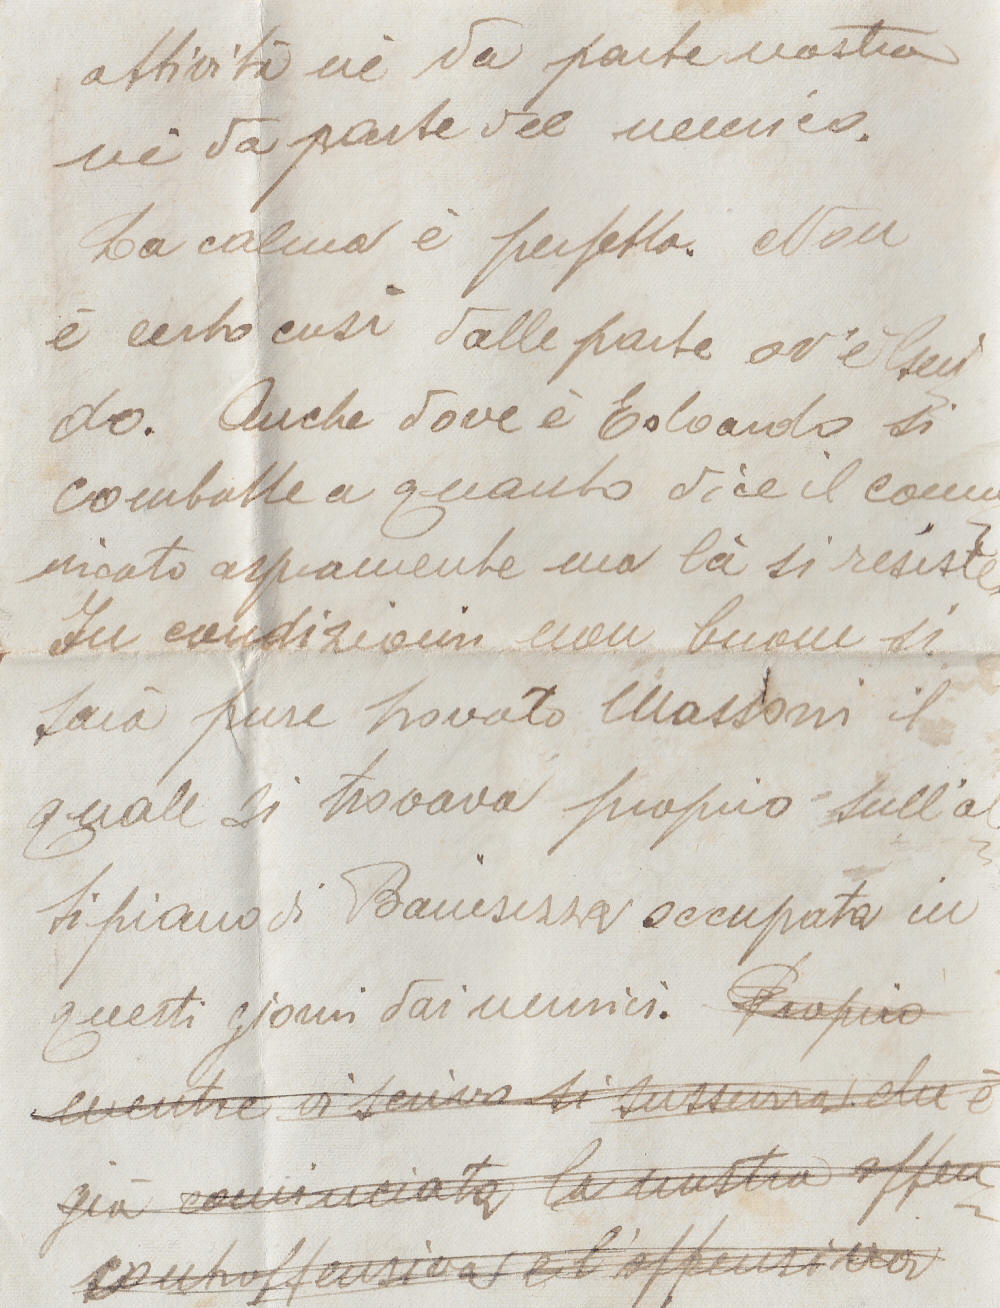 attività nè da parte nostra
nè da parte del nemico.
La calma è perfetta. Non
è certo così dalle parte ov'è
do. Anche dove è Edoardo si
combatte a quanto dice il comu
nicato aspramente ma là si resiste.
In condizioni non buone si
sarà pure trovato Massoni il
quale si trovava proprio sull'al
tipiano di Bainsizza occupata in
questi giorni dai nemici. Proprio
mentre vi scrivo si sussurra che è
già cominciata la nostra offen
controffensiva e l'offensiva